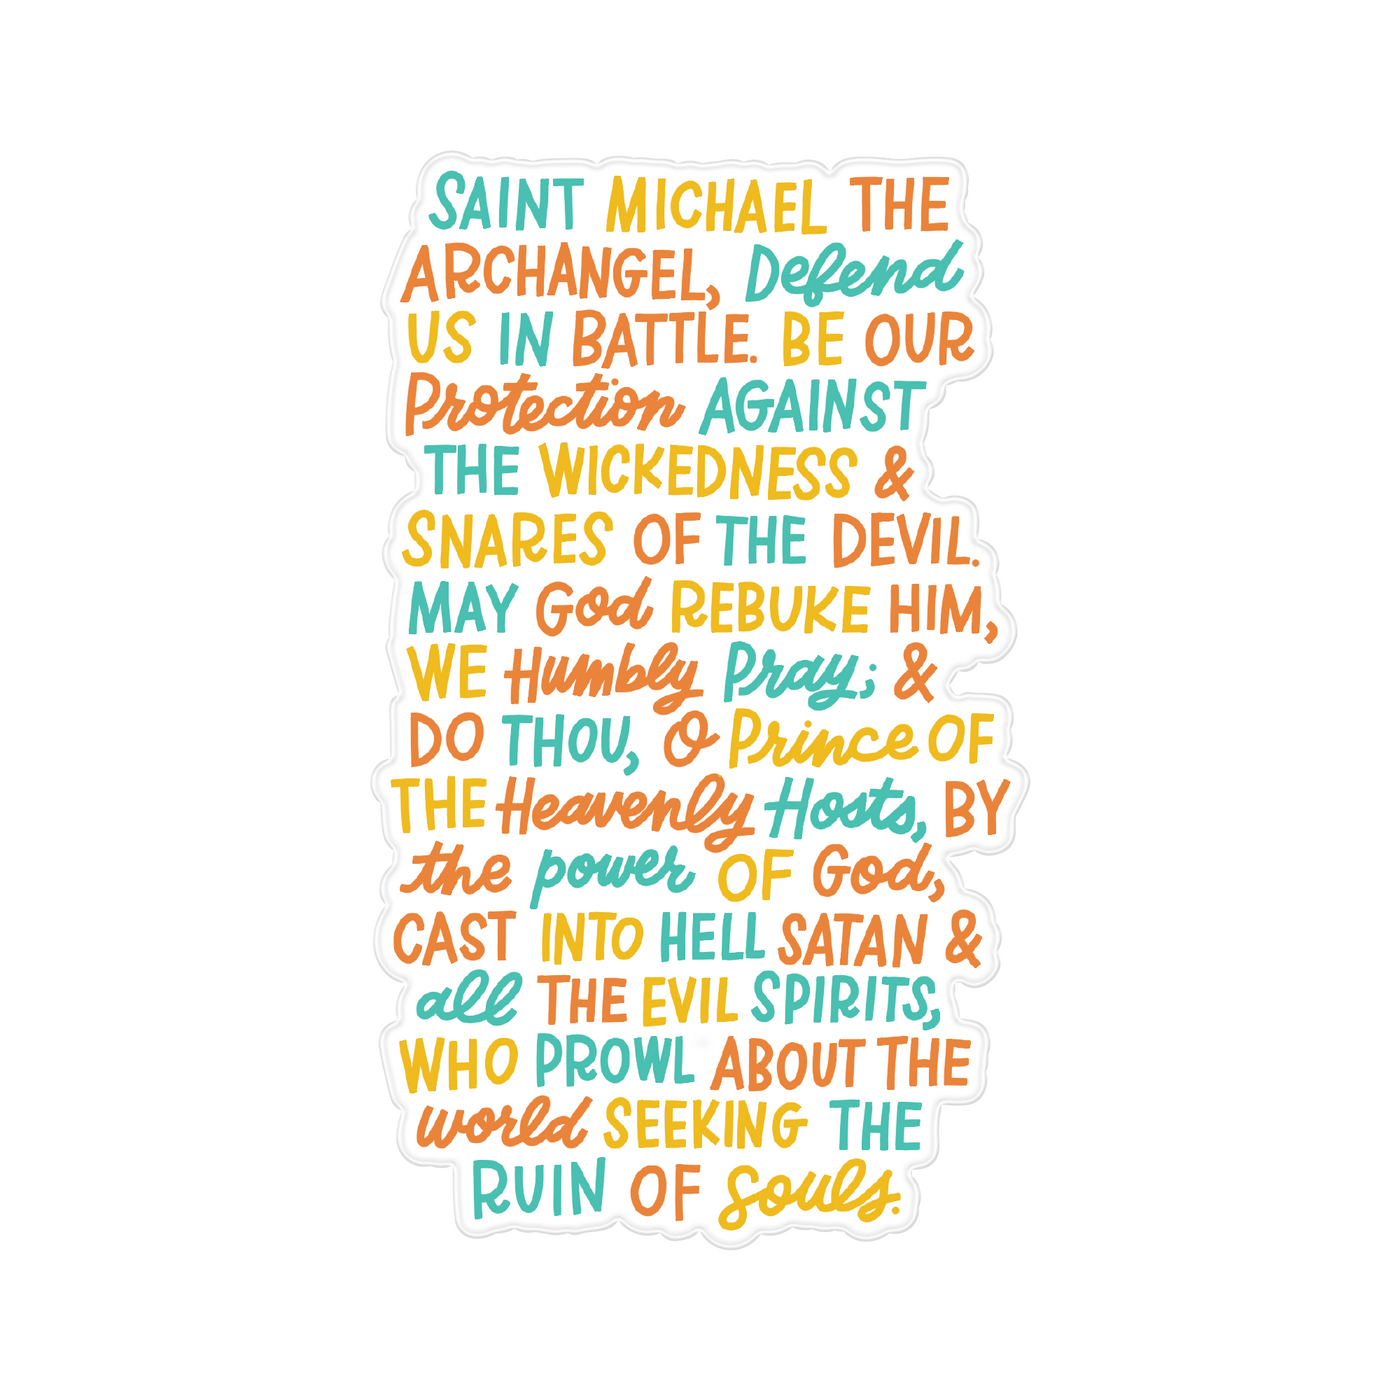 SAINT MICHAEL THE
ARCHANGEL, Defend
US IN BATTLE. BE OUR
Protection AGAINST
THE WICKEDNESS &
SNARES OF THE DEVIL.
MAY God REBUKE HIM,
WE Humbly Pray; &
DO THOU, O Prince OF
THE Heavenly Hosts, BY
the power OF God,
CAST INTO HELL SATAN &
all THE EVIL SPIRITS,
WHO PROWL ABOUT THE
world SEEKING THE
RUIN OF Souls.